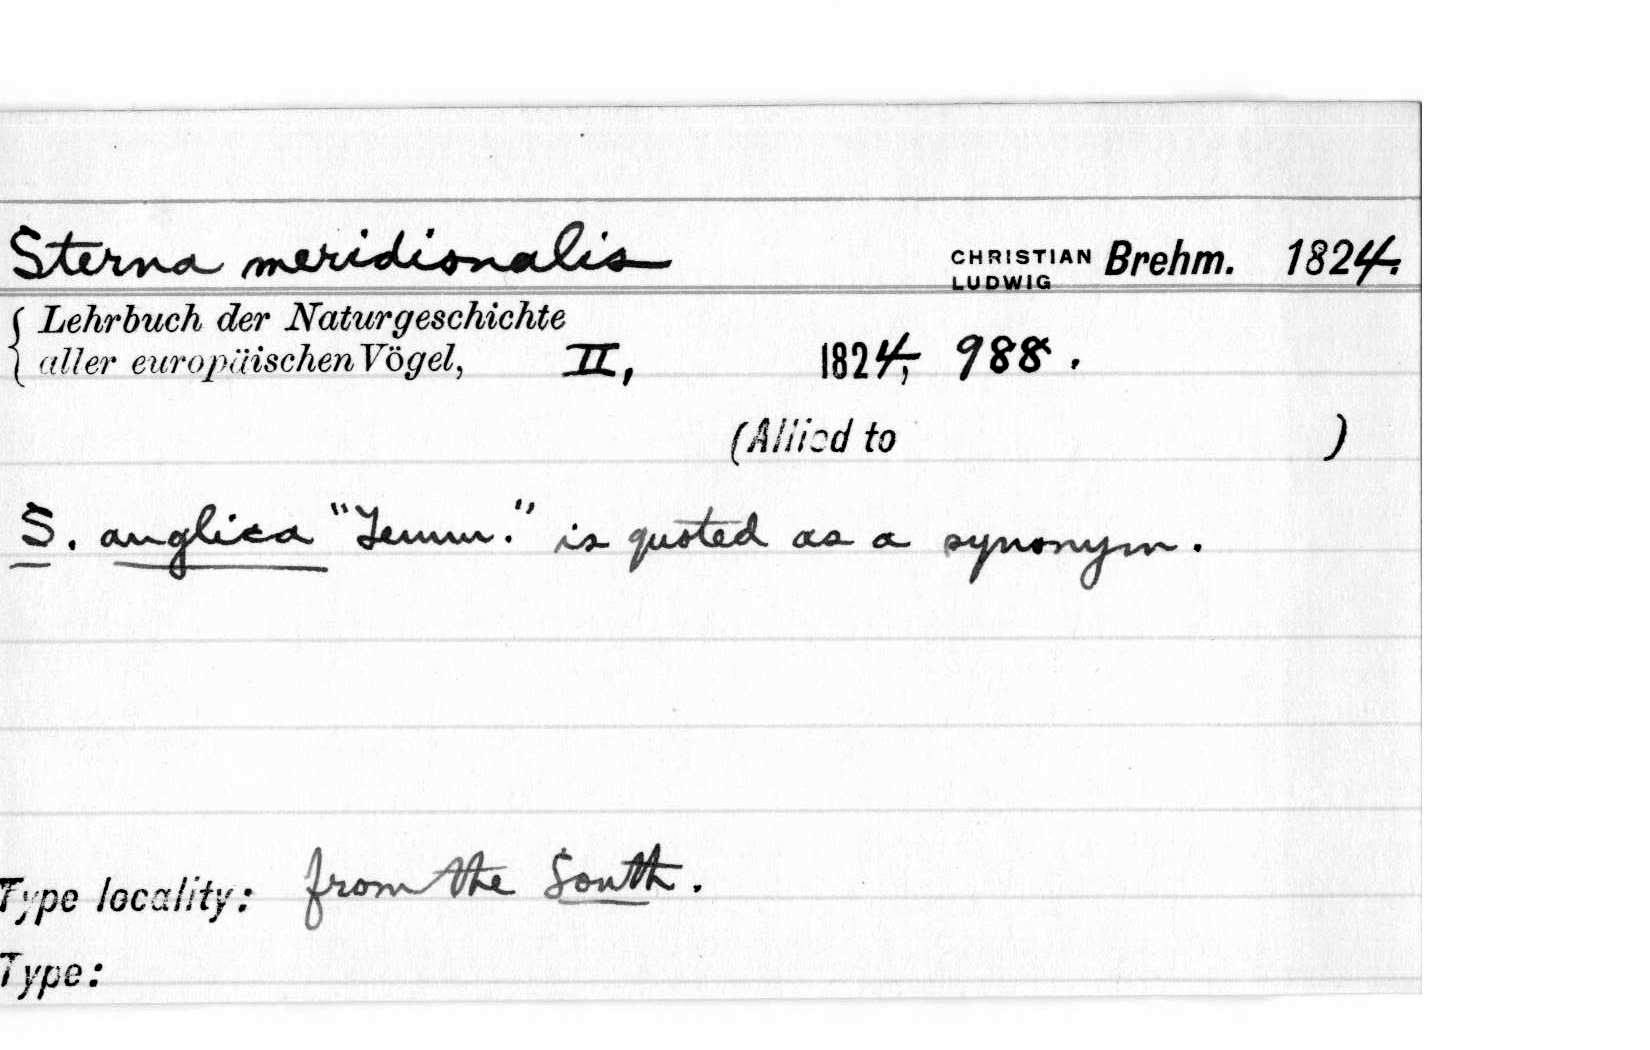 Sterna meridionalis CHRISTIAN LUDWIG Brehm. 1824.
Lehrbuch der Naturgeschichte
aller europäischen Vögel, II, 1824, 988.
(Allied to )
S. anglica "Temm." is quoted as a synonym.
Type locality: from the South.
Type: